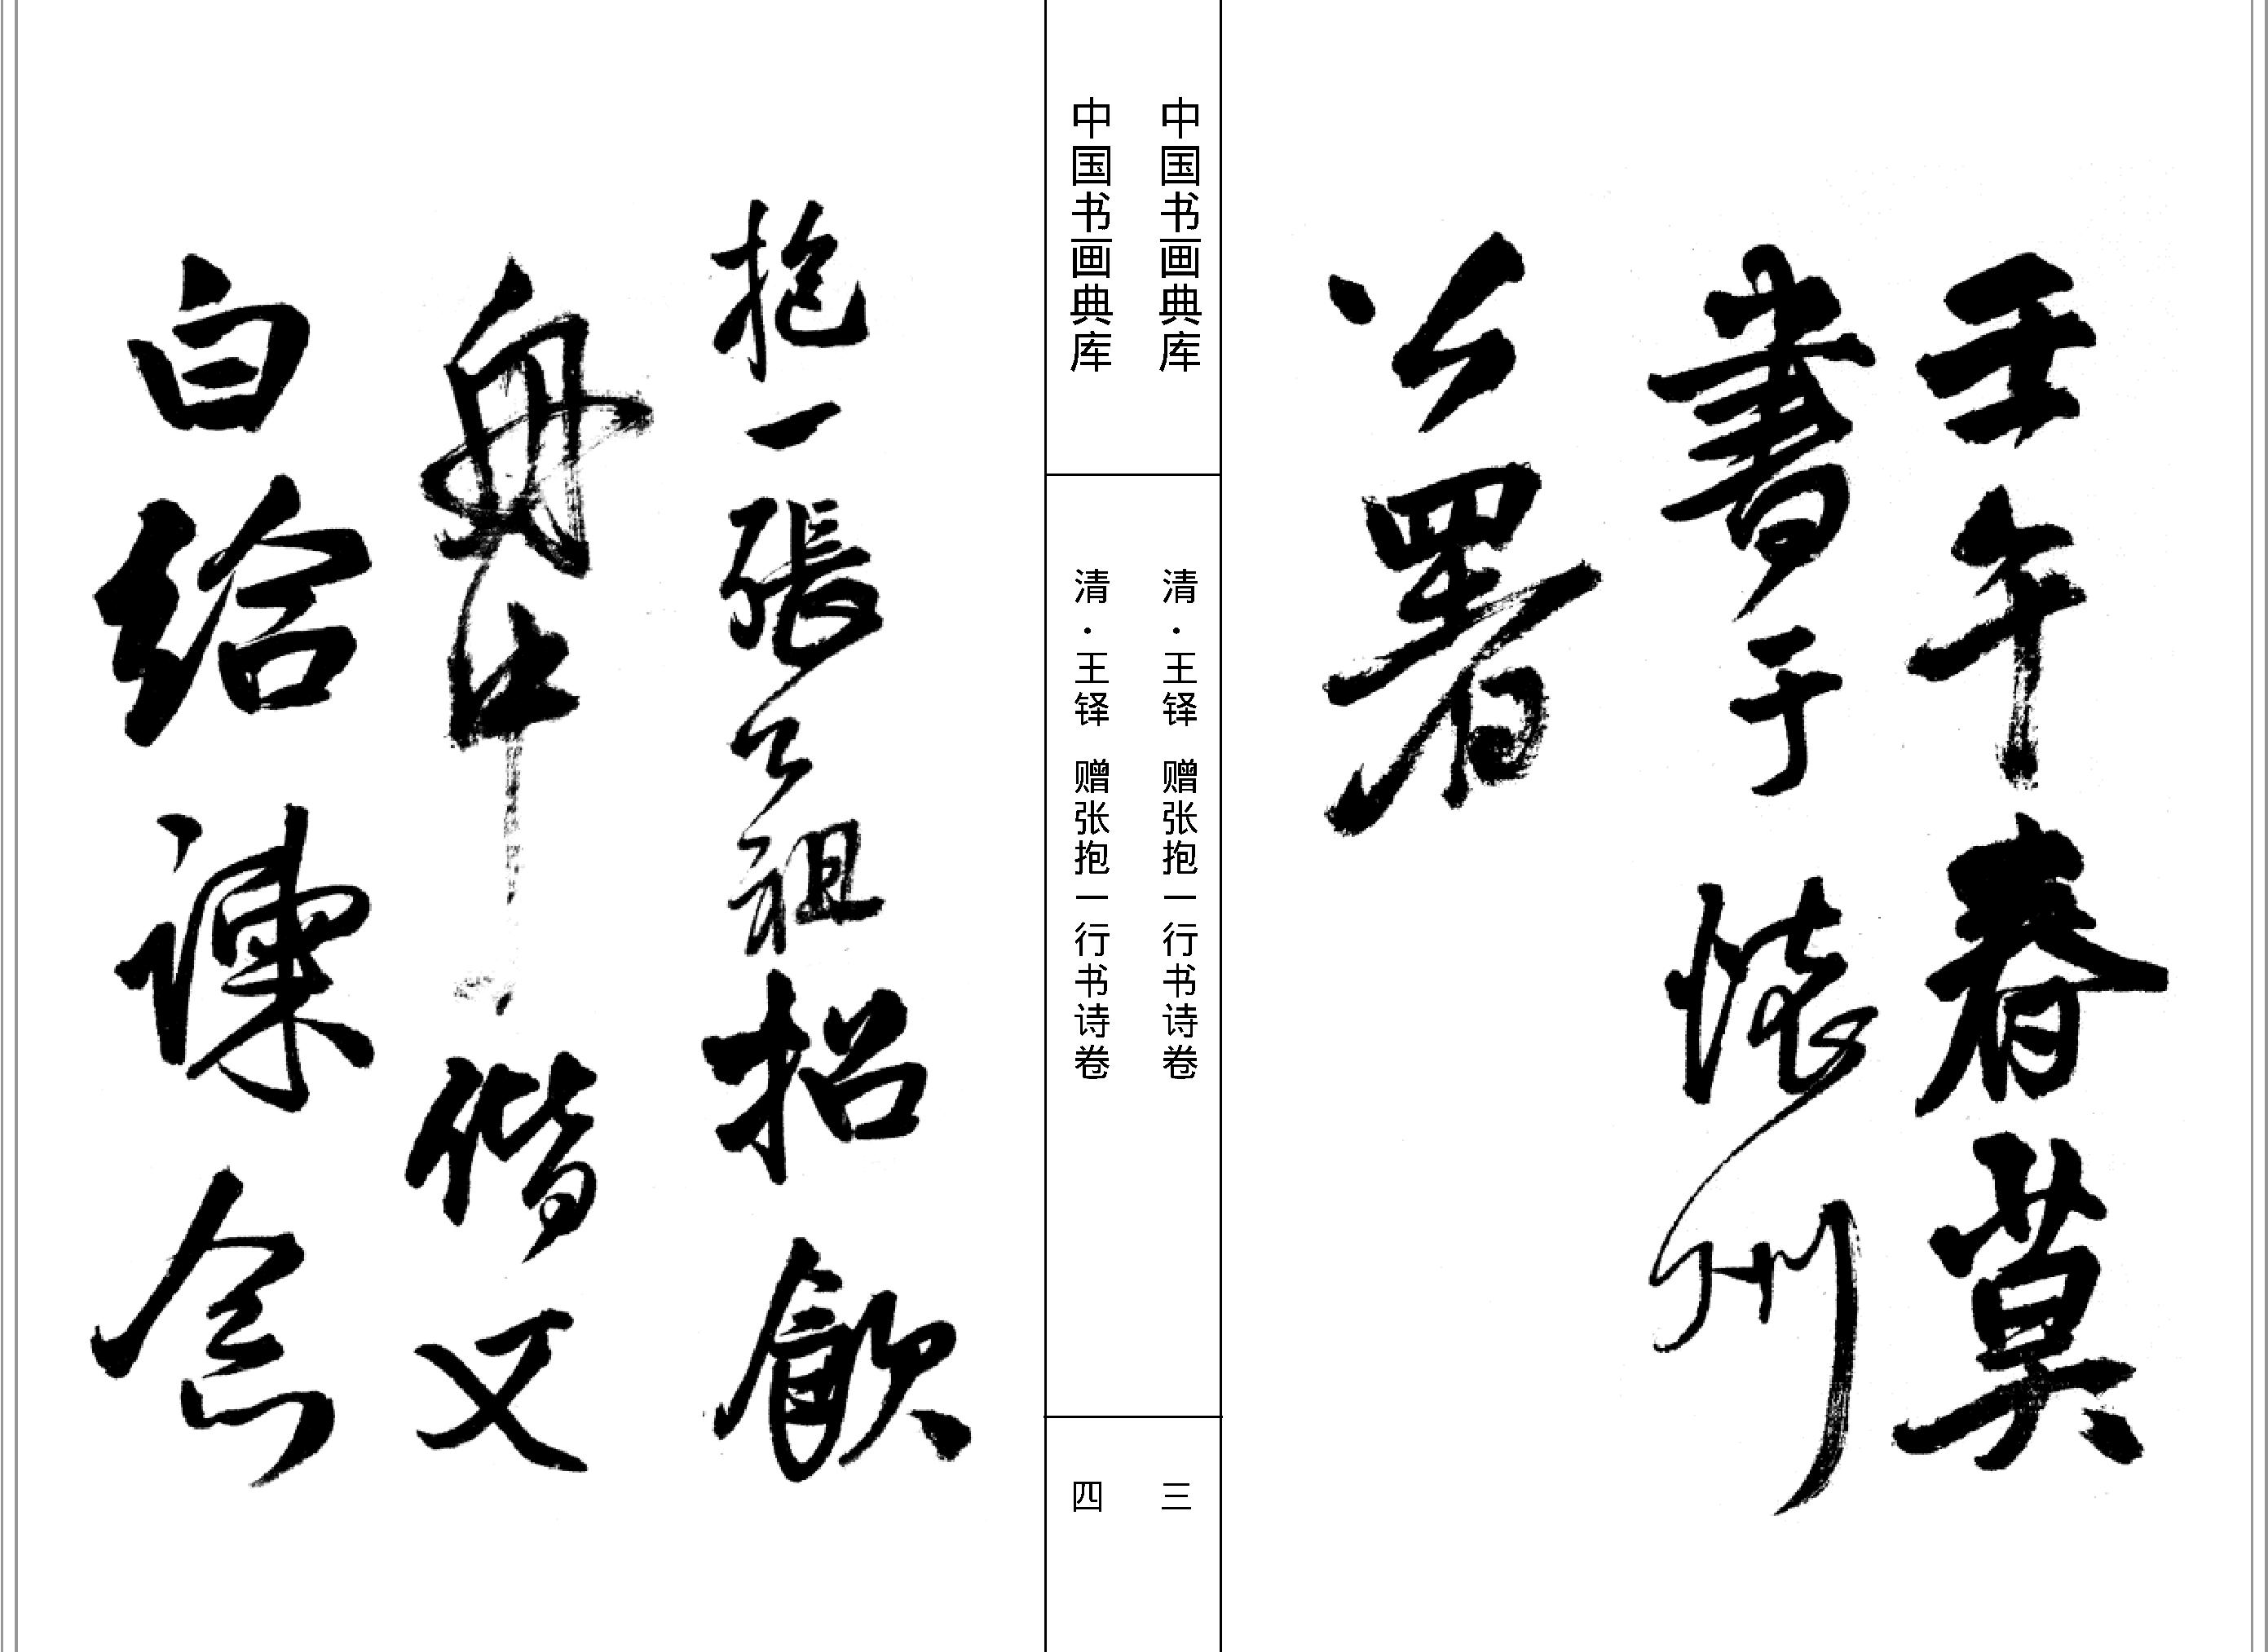 壬午春莫
書于懷州
公署
中国书画典库
清·王铎 赠张抱一行书诗卷
三
中国书画典库
清·王铎 赠张抱一行书诗卷
四
抱一張公祖招飲
舟中偕乂
白給諫念